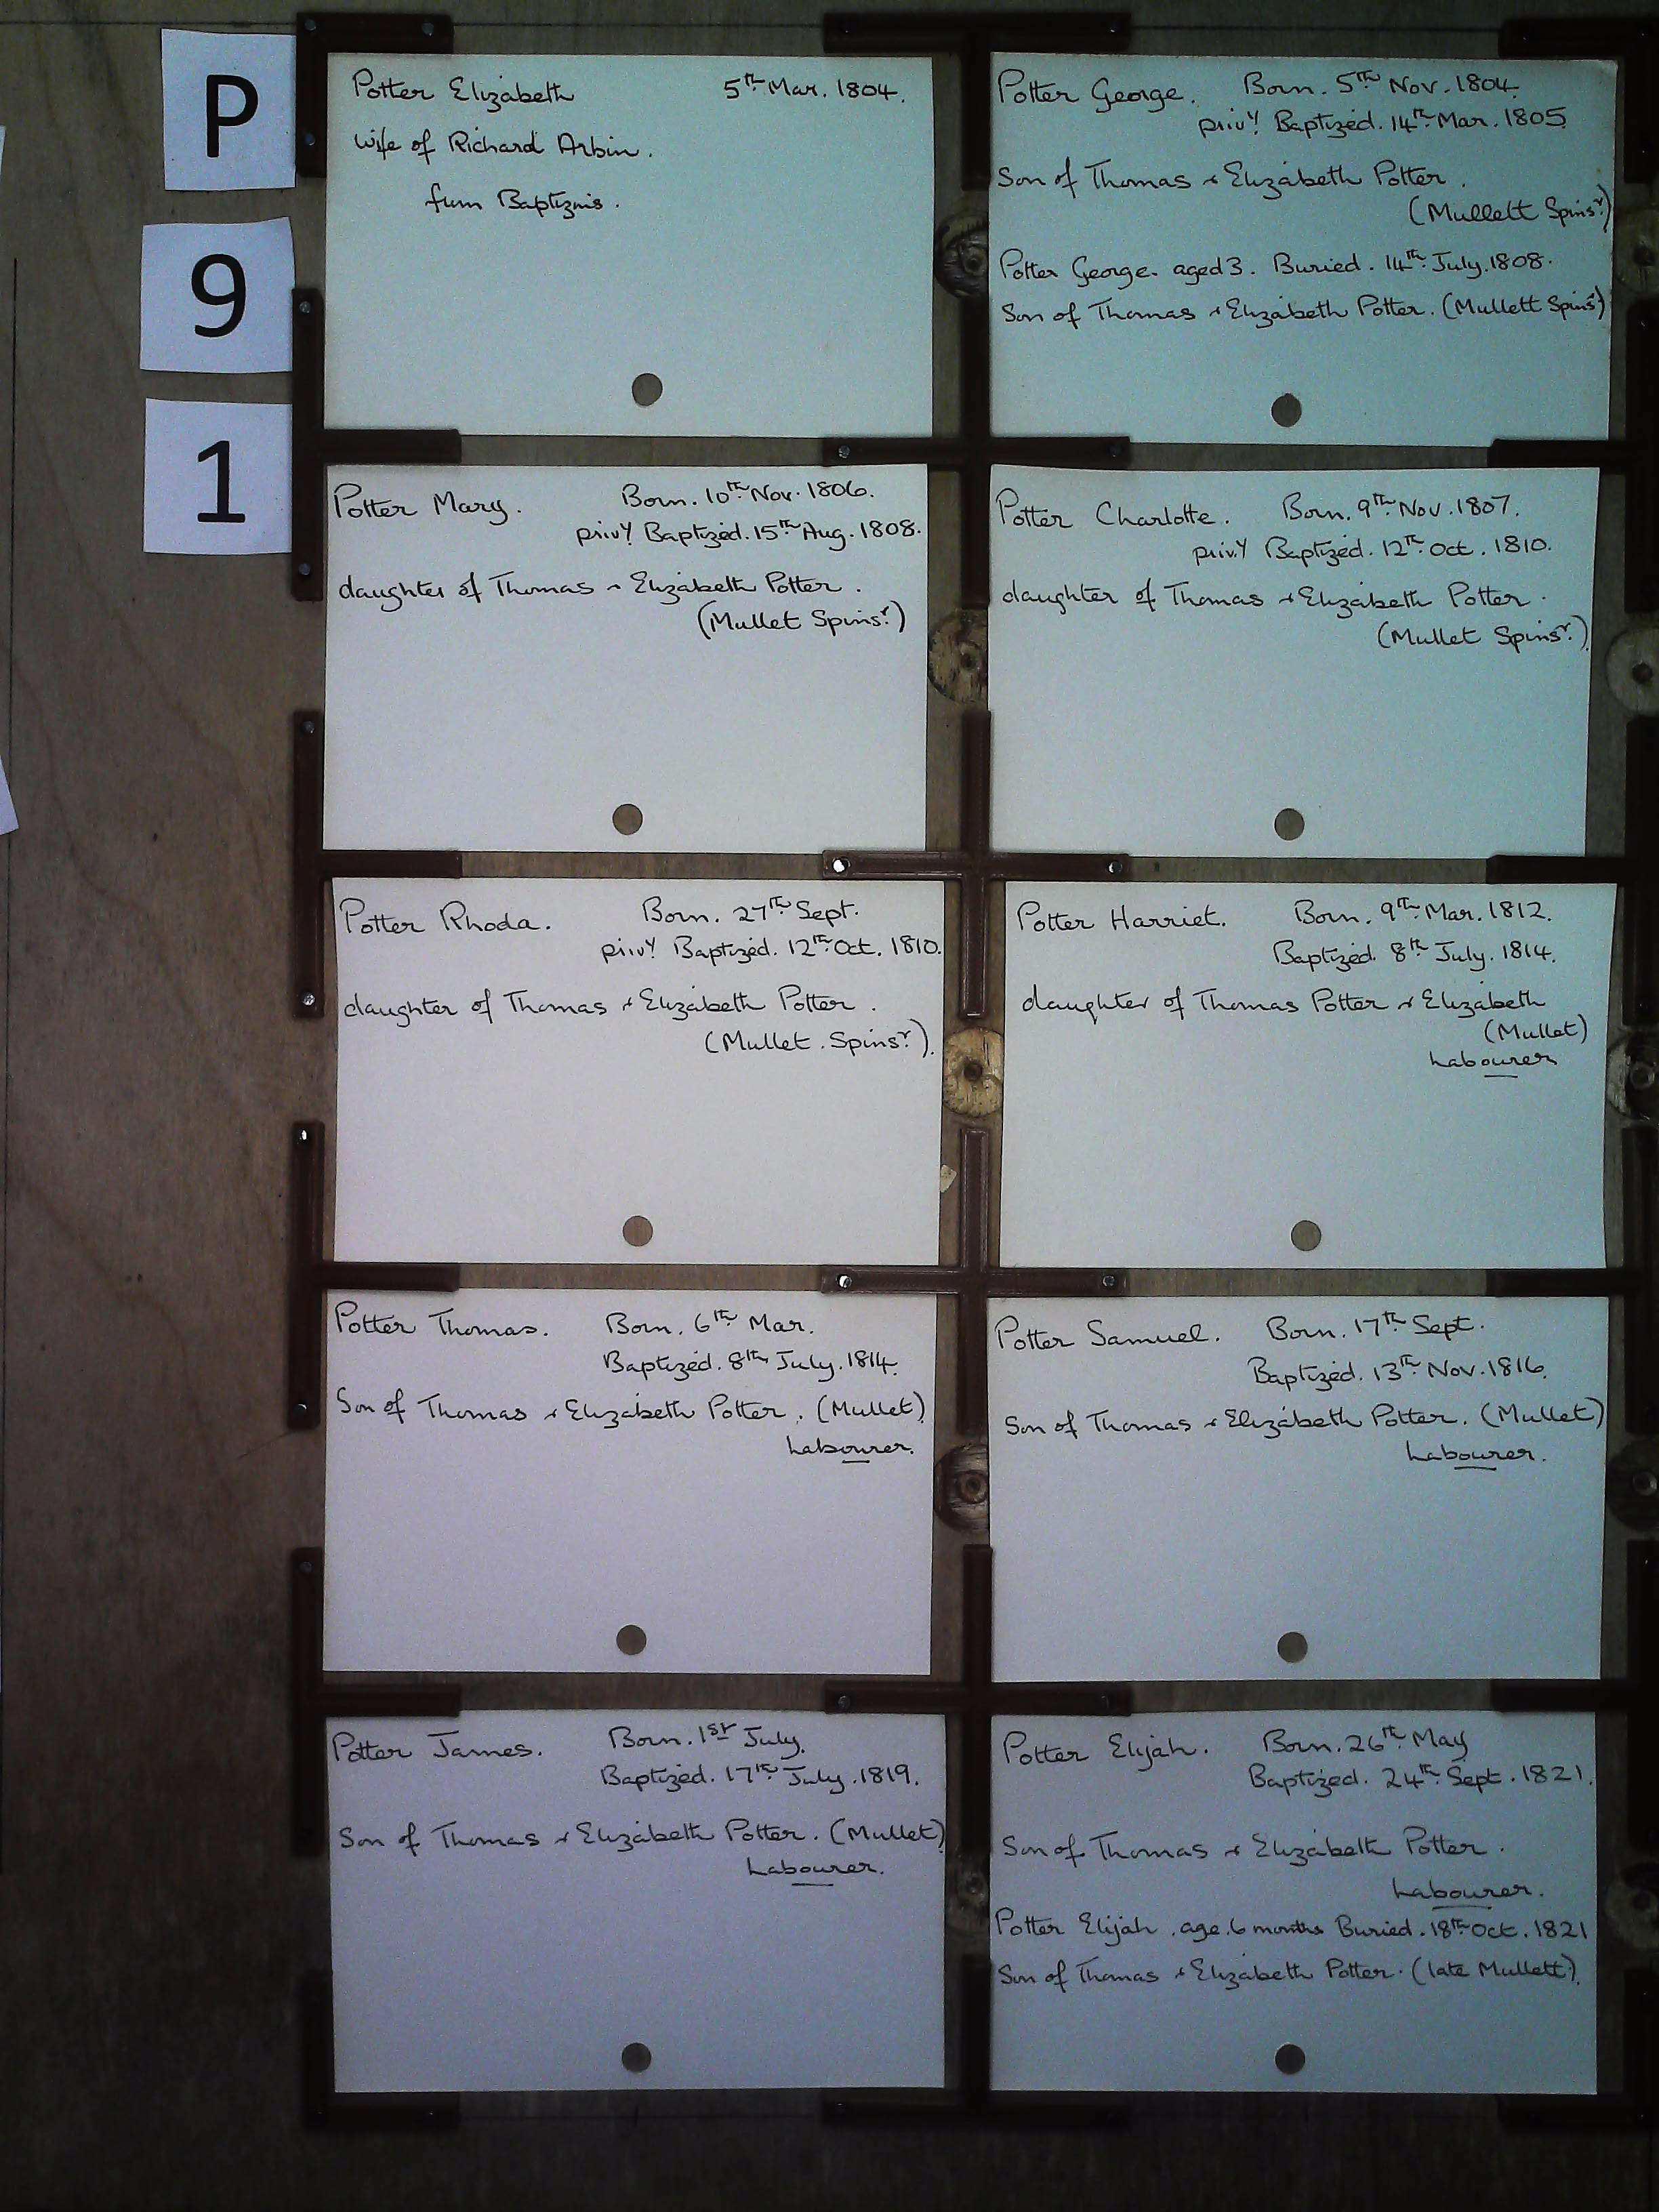 P
9
1
Potter Elizabeth 5th Mar. 1804.
wife of Richard Arbin.
from Baptizms.
Potter George. Born. 5th Nov. 1804.
privy Baptized. 14th Mar. 1805
Son of Thomas & Elizabeth Potter.
(Mullett Spinsr.)
Potter George. aged 3. Buried. 14th July. 1808.
Son of Thomas & Elizabeth Potter. (Mullett Spinsr)
Potter Mary. Born. 10th Nov. 1806.
privy Baptized. 15th Aug. 1808.
daughter of Thomas & Elizabeth Potter.
(Mullet Spinsr.)
Potter Charlotte. Born. 9th Nov. 1807.
priv.y Baptized. 12th Oct. 1810.
daughter of Thomas & Elizabeth Potter.
(Mullet Spinsr.)
Potter Rhoda. Born. 27th Sept.
privy Baptized. 12th Oct. 1810.
daughter of Thomas & Elizabeth Potter.
(Mullet. Spinsr.)
Potter Harriet. Born. 9th Mar. 1812.
Baptized. 8th July. 1814.
daughter of Thomas Potter & Elizabeth
(Mullet)
Labourer
Potter Thomas. Born. 6th Mar.
Baptized. 8th July. 1814.
Son of Thomas & Elizabeth Potter. (Mullet)
Labourer.
Potter Samuel. Born. 17th Sept.
Baptized. 13th Nov. 1816.
Son of Thomas & Elizabeth Potter. (Mullet)
Labourer.
Potter James. Born. 1st July.
Baptized. 17th July. 1819.
Son of Thomas & Elizabeth Potter. (Mullet)
Labourer.
Potter Elijah. Born. 26th May
Baptized. 24th Sept. 1821.
Son of Thomas & Elizabeth Potter.
Labourer.
Potter Elijah. age. 6 months Buried. 18th Oct. 1821
Son of Thomas & Elizabeth Potter. (late Mullett).